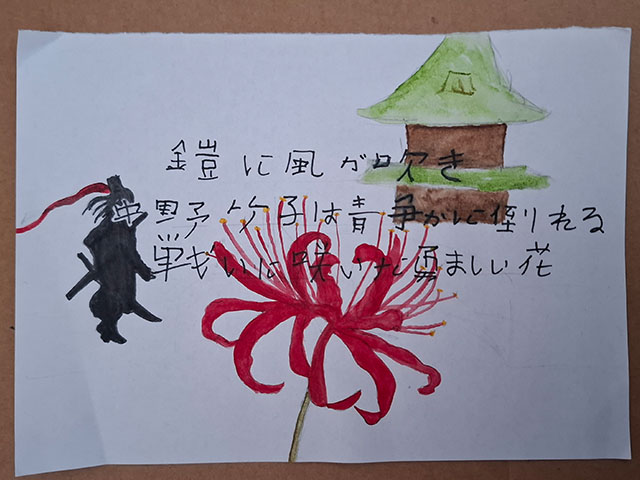 鎧に風が吹き
中野竹子は静かに倒れる
戦いに咲いた勇ましい花